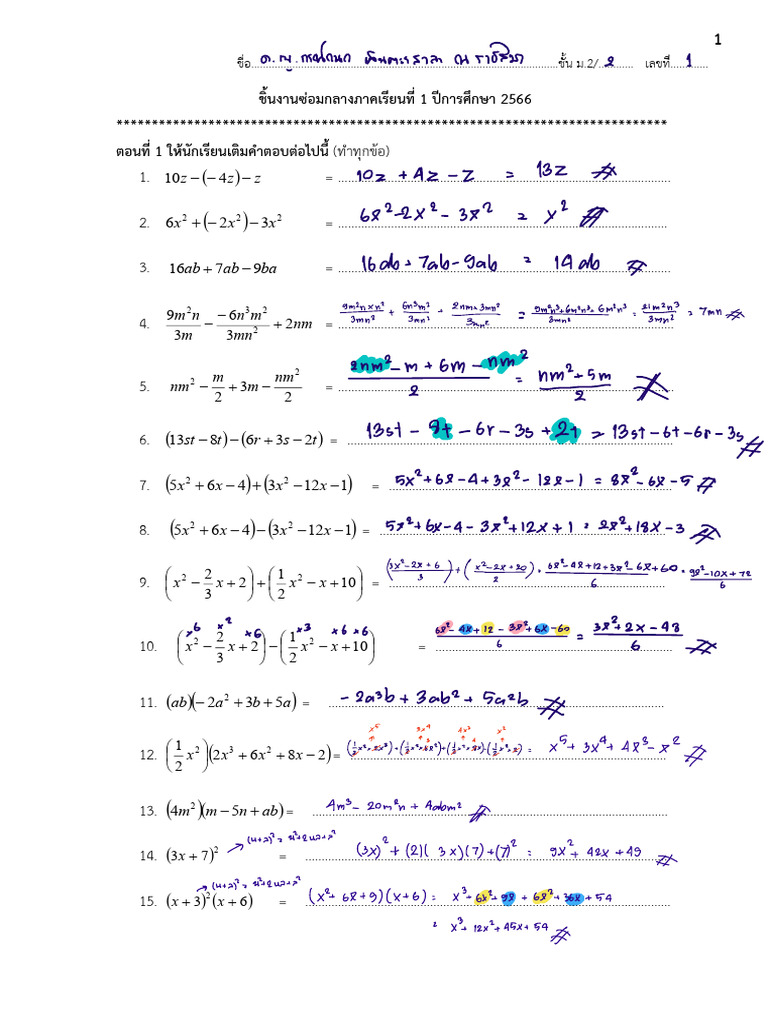 1
ชื่อ ด.ญ. ชั้น ม.2/ 2 เลขที่ 1
ชิ้นงานซ่อมกลางภาคเรียนที่ 1 ปีการศึกษา 2566
******************************************************************************
ตอนที่ 1 ให้นักเรียนเติมคำตอบต่อไปนี้ (ทำทุกข้อ)
1. 10z − (− 4z) − z = 10z + 4z − z = 13z #
2. 6x² + (− 2x²) − 3x² = 6x² − 2x² − 3x² = x² #
3. 16ab + 7ab − 9ba = 16ab + 7ab − 9ab = 14ab #
4. 9m²n/3m − −6n³m²/3mn² + 2nm = 9m²n×n²/3mn² + 6n³m²/3mn² + 2nm×3mn²/3mn² = 9m²n³+6m²n³+6m²n³/3mn² = 21m²n³/3mn² = 7mn #
5. nm² − m/2 + 3m − nm²/2 = 2nm² − m + 6m − nm²/2 = nm² + 5m/2 #
6. (13st − 8t) − (6r + 3s − 2t) = 13st − 8t − 6r − 3s + 2t = 13st − 6t − 6r − 3s #
7. (5x² + 6x − 4) + (3x² − 12x − 1) = 5x² + 6x − 4 + 3x² − 12x − 1 = 8x² − 6x − 5 #
8. (5x² + 6x − 4) − (3x² − 12x − 1) = 5x² + 6x − 4 − 3x² + 12x + 1 = 2x² + 18x − 3 #
9. (x² − 2/3 x + 2) + (1/2 x² − x + 10) = (3x² − 2x + 6/3) + (x² − 2x + 20/2) = 6x² − 4x + 12 + 3x² − 6x + 60/6 = 9x² − 10x + 72/6
×6 ×2 ×6 ×3 ×6 ×6
10. (x² − 2/3 x + 2) − (1/2 x² − x + 10) = 6x² − 4x + 12 − 3x² + 6x − 60/6 = 3x² + 2x − 48/6 #
11. (ab)(− 2a² + 3b + 5a) = − 2a³b + 3ab² + 5a²b #
x⁵ 3x⁴ 4x³ x²
12. (1/2 x²)(2x³ + 6x² + 8x − 2) = (1/2 x² × 2x³) + (1/2 x² × 6x²) + (1/2 x² × 8x) − (1/2 x² × 2) = x⁵ + 3x⁴ + 4x³ − x² #
13. (4m²)(m − 5n + ab) = 4m³ − 20m²n + 4abm² #
14. (3x + 7)² = (3x)² + (2)(3x)(7) + (7)² = 9x² + 42x + 49 #
15. (x + 3)²(x + 6) = (x² + 6x + 9)(x + 6) = x³ + 6x² + 9x + 6x² + 36x + 54
= x³ + 12x² + 45x + 54 #